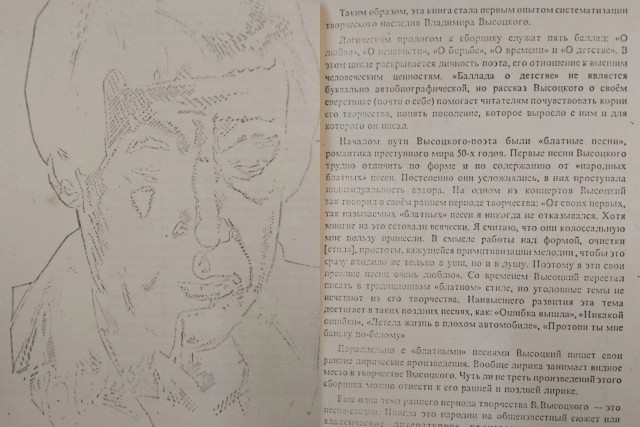 Таким образом, эта книга стала первым опытом систематизации
творческого наследия Владимира Высоцкого.
Логическим прологом к сборнику служат пять баллад: «О
любви», «О ненависти», «О борьбе», «О времени» и «О детстве». В
этом цикле раскрывается личность поэта, его отношение к высшим
человеческим ценностям. «Баллада о детстве» не является
буквально автобиографической, но рассказ Высоцкого о своём
сверстнике (почти о себе) помогает читателям почувствовать корни
его творчества, понять поколение, которое выросло с ним и для
которого он писал.
Началом пути Высоцкого-поэта были «блатные песни»,
романтика преступного мира 50-х годов. Первые песни Высоцкого
трудно отличить по форме и по содержанию от «народных
блатных» песен. Постепенно они усложнялись, в них проступала
индивидуальность автора. На одном из концертов Высоцкий
так говорил о своём раннем периоде творчества: «От своих первых,
так называемых «блатных» песен я никогда не отказывался. Хотя
многие на это сетовали всячески. Я считаю, что они колоссальную
мне пользу принесли. В смысле работы над формой, очистки
[стиля], простоты, кажущейся примитивизации мелодии, чтобы это
сразу входило не только в уши, но и в душу. Поэтому я эти свои
прежние песни очень люблю». Со временем Высоцкий перестал
писать в традиционном «блатном» стиле, но уголовные темы не
исчезают из его творчества. Наивысшего развития эта тема
достигает в таких поздних песнях, как: «Ошибка вышла», «Никакой
ошибки», «Летела жизнь в плохом автомобиле», «Протопи ты мне
баньку по-белому»
Параллельно с «блатными» песнями Высоцкий пишет свои
ранние лирические произведения. Вообще лирика занимает видное
место в творчестве Высоцкого. Чуть ли не треть произведений этого
сборника можно отнести к его ранней и поздней лирике.
Еще одна тема раннего периода творчества В.Высоцкого — это
песни-сказки. Иногда это пародии на общеизвестный сюжет или
классическое литературное